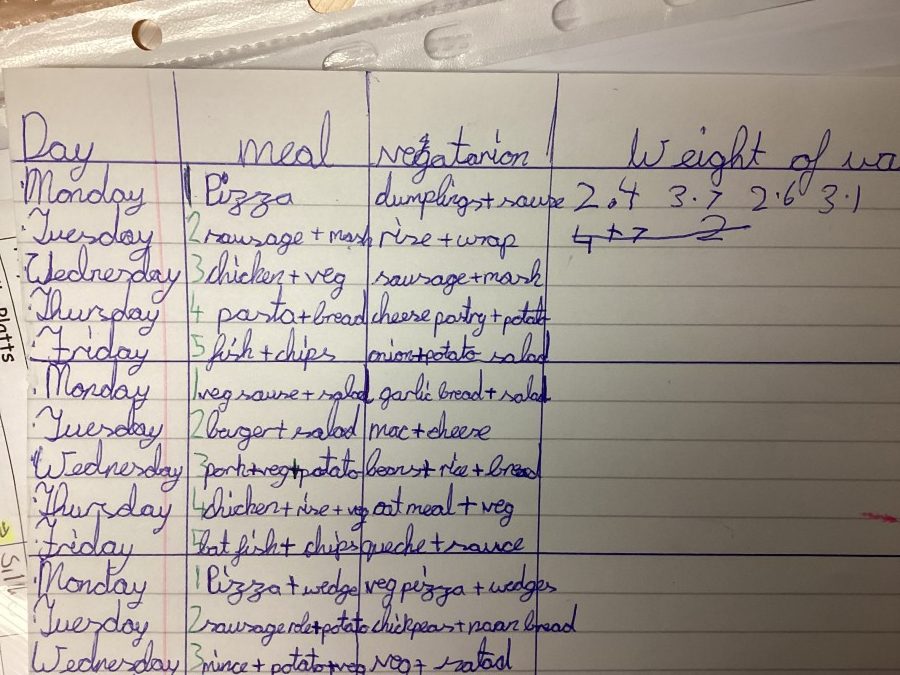 Day meal vegatarion Weight of wa
Monday 1 Pizza dumplings + sause 2.4 3.7 2.6 3.1
Tuesday 2 sausage + mash rise + wrap
Wednesday 3 chicken + veg sausage + mash
Thursday 4 pasta + bread cheese pastry + potato
Friday 5 fish + chips onion + potato salad
Monday 1 veg sause + salad garlic bread + salad
Tuesday 2 burgert salad mac + cheese
Wednesday 3 pork + veg + potato beans + rice + bread
Thursday 4 chicken + rise + veg oat meal + veg
Friday 5 bat fish + chips queche + sauce
Monday 1 Pizza + wedge veg pizza + wedges
Tuesday 2 sausage role + potato chickpeas + naan bread
Wednesday 3 mince + potato + veg veg + salad
Platts